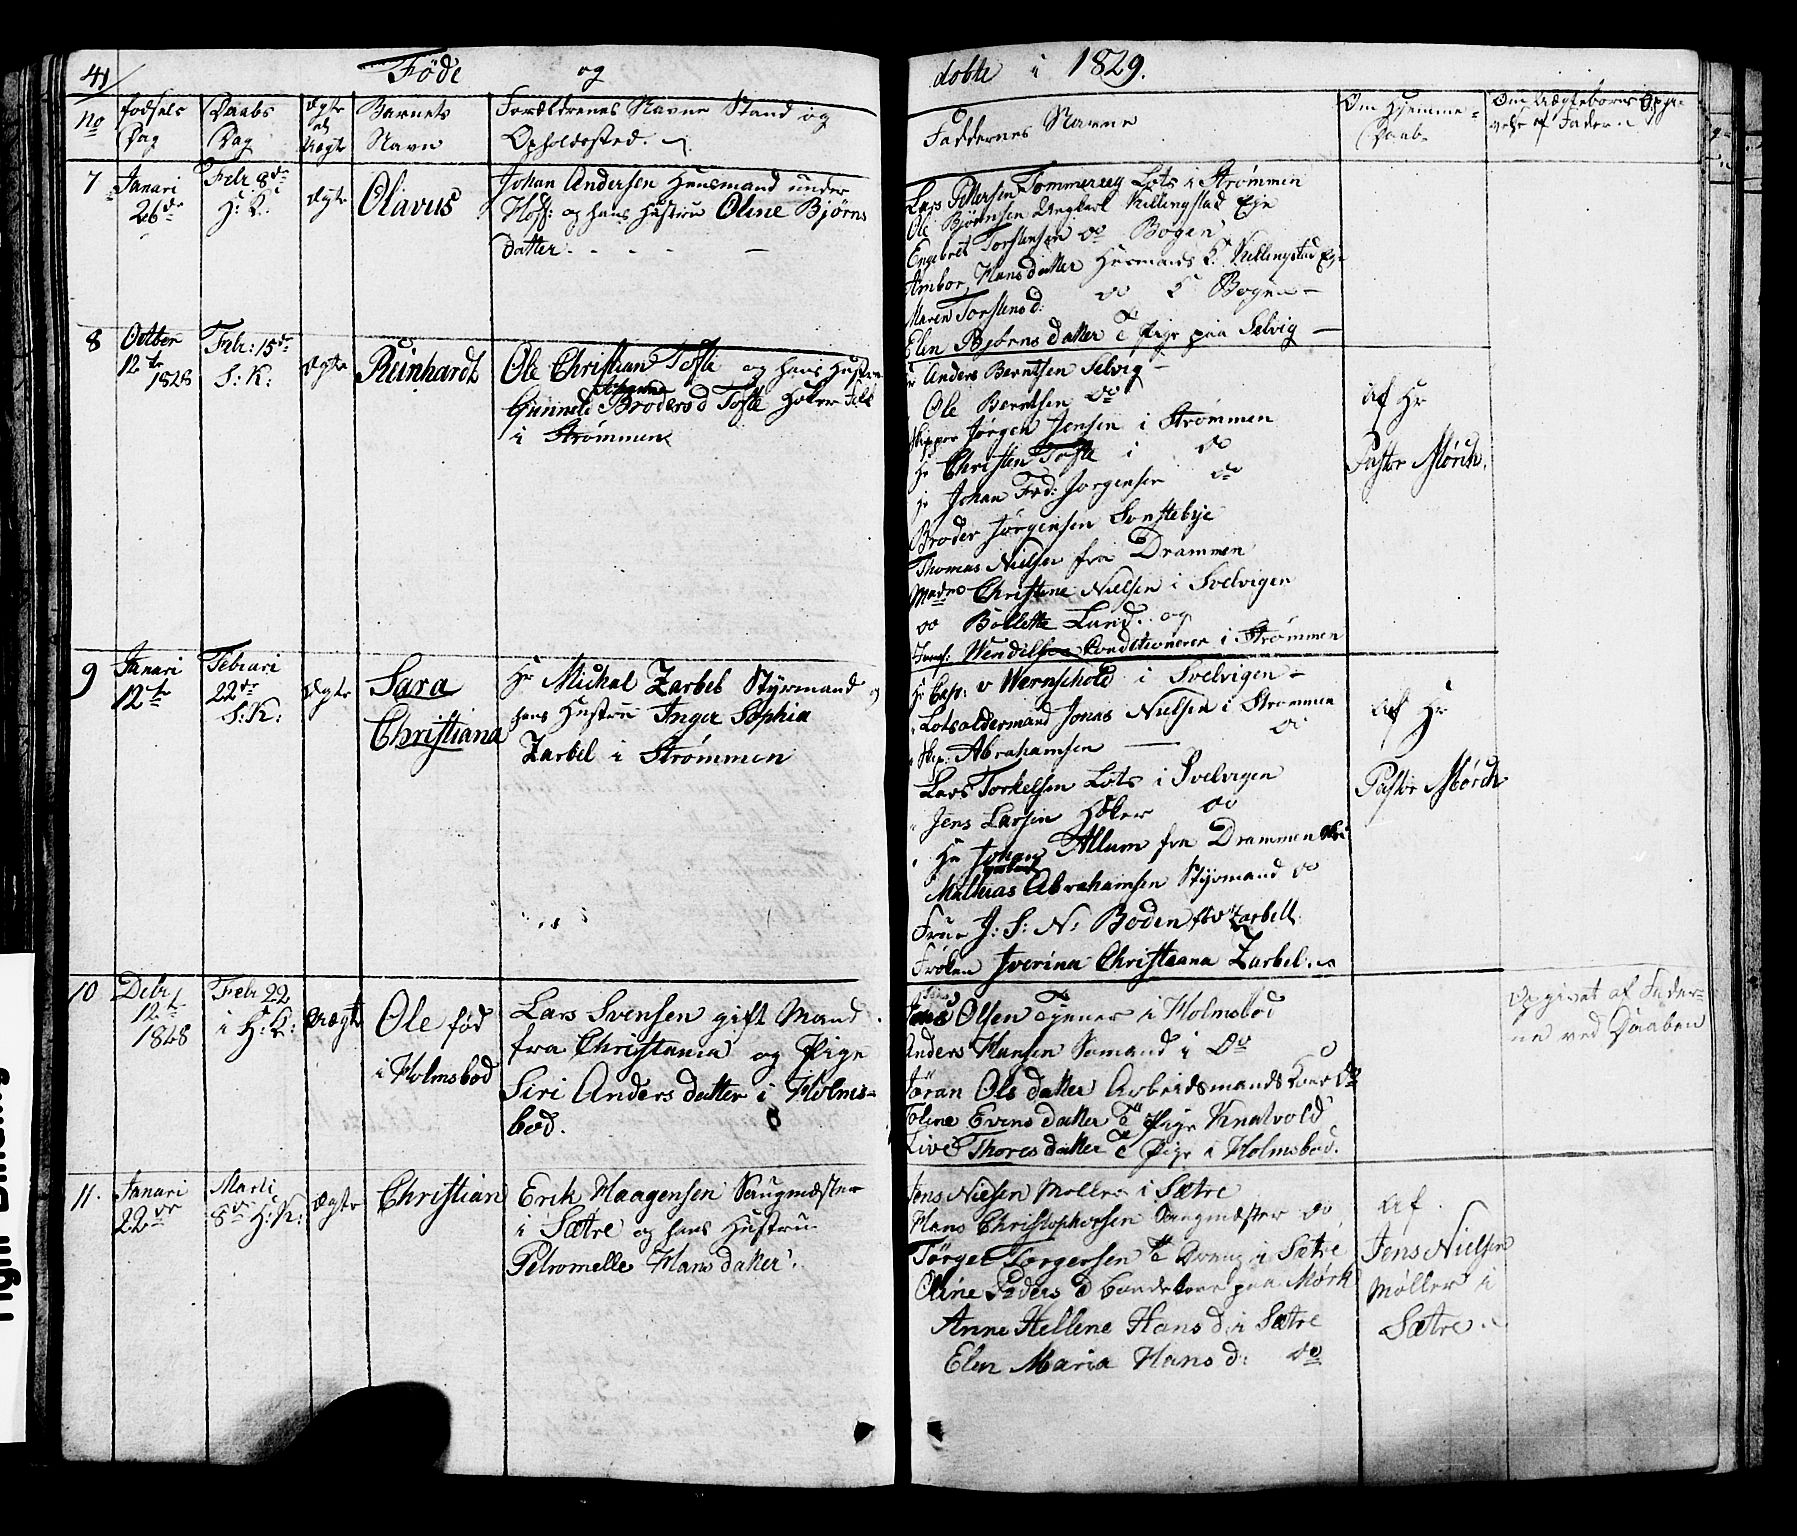 41 Føde og døbte i 1829.
No
Fødsels Dag
Daabs Dag
Ægte el Uægte
Barnets Navn
Forældrenes Navne Stand og
Opholdssted.
Faddernes Navne
Om Hjemme-
Daab
Om Uægtebørns Opgi-
velse af Faderen
7
Januari
26de
Febr 8de
H: K:
Ægte
Olavus
Johan Andersen Huusmand under
Hoff: og hans Hustrue Oline Bjørns
datter
Lars Pettersen Tommeraeg Lots i Strømmen
Ole Bjørnsen Ungkarl Killingstad Eje
Engebret Torstensen do Bogen
Ambor Hansdatter Huusmands K. Killingstad Eje
Maren Torstensd: do K Bogen
Elen Bjørnsdatter T Pige paa Selvig
8
Octber
12te
1828
Febr: 15de
S: K:
Ægte
Reinhardt
Ole Christian Tofte og hans Hustru
Gunnele Brodersd Tofte Høker Folk
i Strømmen
Hr Anders Berntsen Selvig
Ole Berntsen do
Skipper Jørgen Jensen i Strømmen
Hr Christen Tofte i do
Hr Johan Frd: Jørgensen do
Broder Jørgensen Sønstebye
Thomas Nielsen fra Drammen
Madme Christine Nielsen i Svelvigen
do Bollette Lund. og
Jomf: Wendelsen Conditionerer i Strømmen
af Hr
Pastor Mørch.
9
Januari
12te
Februari
22de
S: K:
Ægte
Sara
Christiana
Hr Michal Zarbel Styrmand og
hans Hustrue Inger Sophia
Zarbel i Strømmen
Hr Cap: v Wernschold i Svelvigen
Lotsoldermand Jonas Nielsen i Strømmen
Skip: Abrahamsen do
Lars Torkelsen Lots i Svelvigen
Jens Larsen Høker do
Hr Johan Allum fra Drammen
Mathias Abrahamsen Styrmand do
Frue J: S: N: Boden f: Zarbell
Frøken Iverina Christiana Zarbel.
af Hr
Pastor Mørch
10
Debr
12te
1828
Febr 22
i H: K:
Uægte
Ole fød
i Holmsbod
Lars Svensen gift Mand
fra Christiania og Pige
Siri Andersdatter i Holms-
bod.
Jens Olsen Tjener i Holmsbod
Anders Hansen Sømand i do
Jøran Olsdatter Arbeidsmands Kone do
Toline Evensdatter T Pige Knatvold
Live Thoresdatter T Pige i Holmsbod.
Opgivet af Fader-
ne ved Daaben
11.
Januari
22de
Marti
8de H: K:
Ægte
Christian
Erik Haagensen Saugmæster
i Sætre og hans Hustrue
Petromelle Hansdatter.
Jens Nielsen Møller i Sætre
Hans Christophersen Saugmæster do
Tørger Torgersen T Dreng i Sætre
Oline Peders d Bondekone paa Mørk
Anne Hellene Hans d. i Sætre
Elen Maria Hans d: do
af
Jens Nielsen
Møller i
Sætre